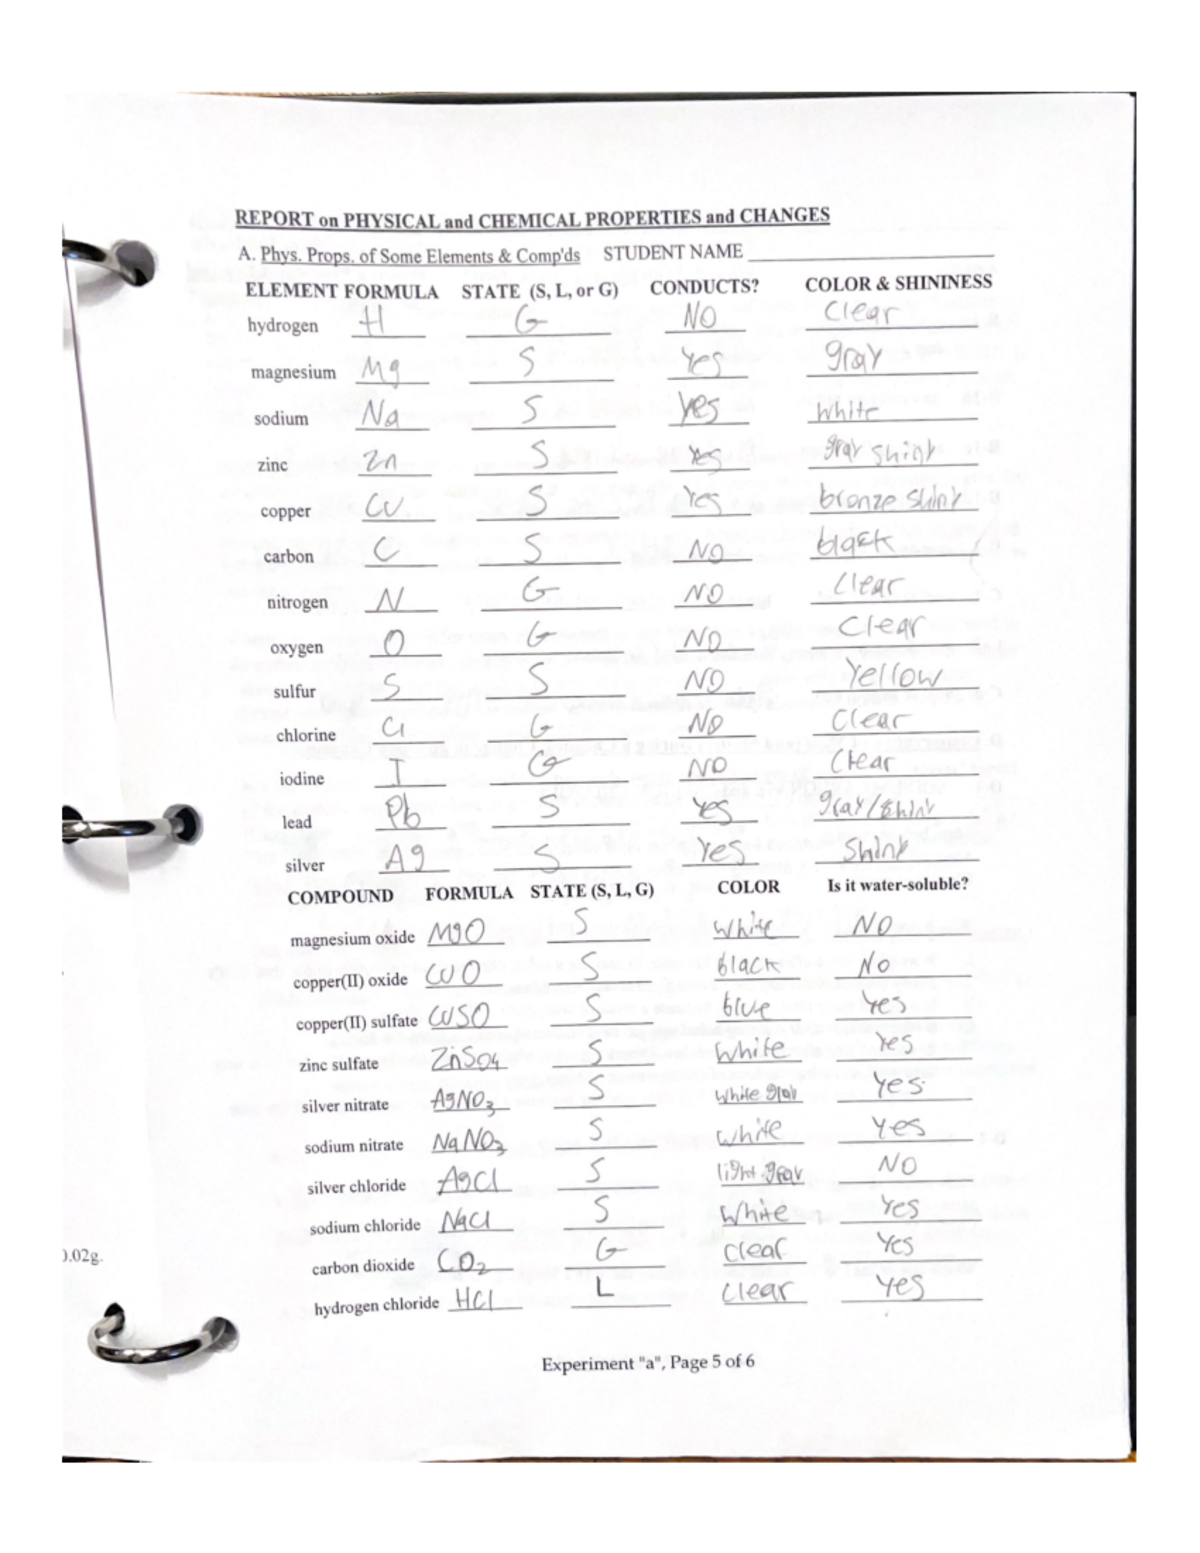 REPORT on PHYSICAL and CHEMICAL PROPERTIES and CHANGES
A. Phys. Props. of Some Elements & Comp'ds STUDENT NAME
ELEMENT FORMULA STATE (S, L, or G) CONDUCTS? COLOR & SHININESS
hydrogen H G NO Clear
magnesium Mg S Yes gray
sodium Na S Yes white
zinc Zn S Yes gray shiny
copper Cu S Yes bronze shiny
carbon C S NO black
nitrogen N G NO Clear
oxygen O G NO Clear
sulfur S S NO Yellow
chlorine Cl G NO Clear
iodine I G NO Clear
lead Pb S Yes gray/shiny
silver Ag S Yes Shiny
COMPOUND FORMULA STATE (S, L, G) COLOR Is it water-soluble?
magnesium oxide MgO S white NO
copper(II) oxide CuO S black No
copper(II) sulfate CuSO S blue Yes
zinc sulfate ZnSO4 S white Yes
silver nitrate AgNO3 S white gray Yes
sodium nitrate NaNO3 S white Yes
silver chloride AgCl S light gray NO
sodium chloride NaCl S white Yes
0.02g.
carbon dioxide CO2 G clear Yes
hydrogen chloride HCl L clear Yes
Experiment "a", Page 5 of 6